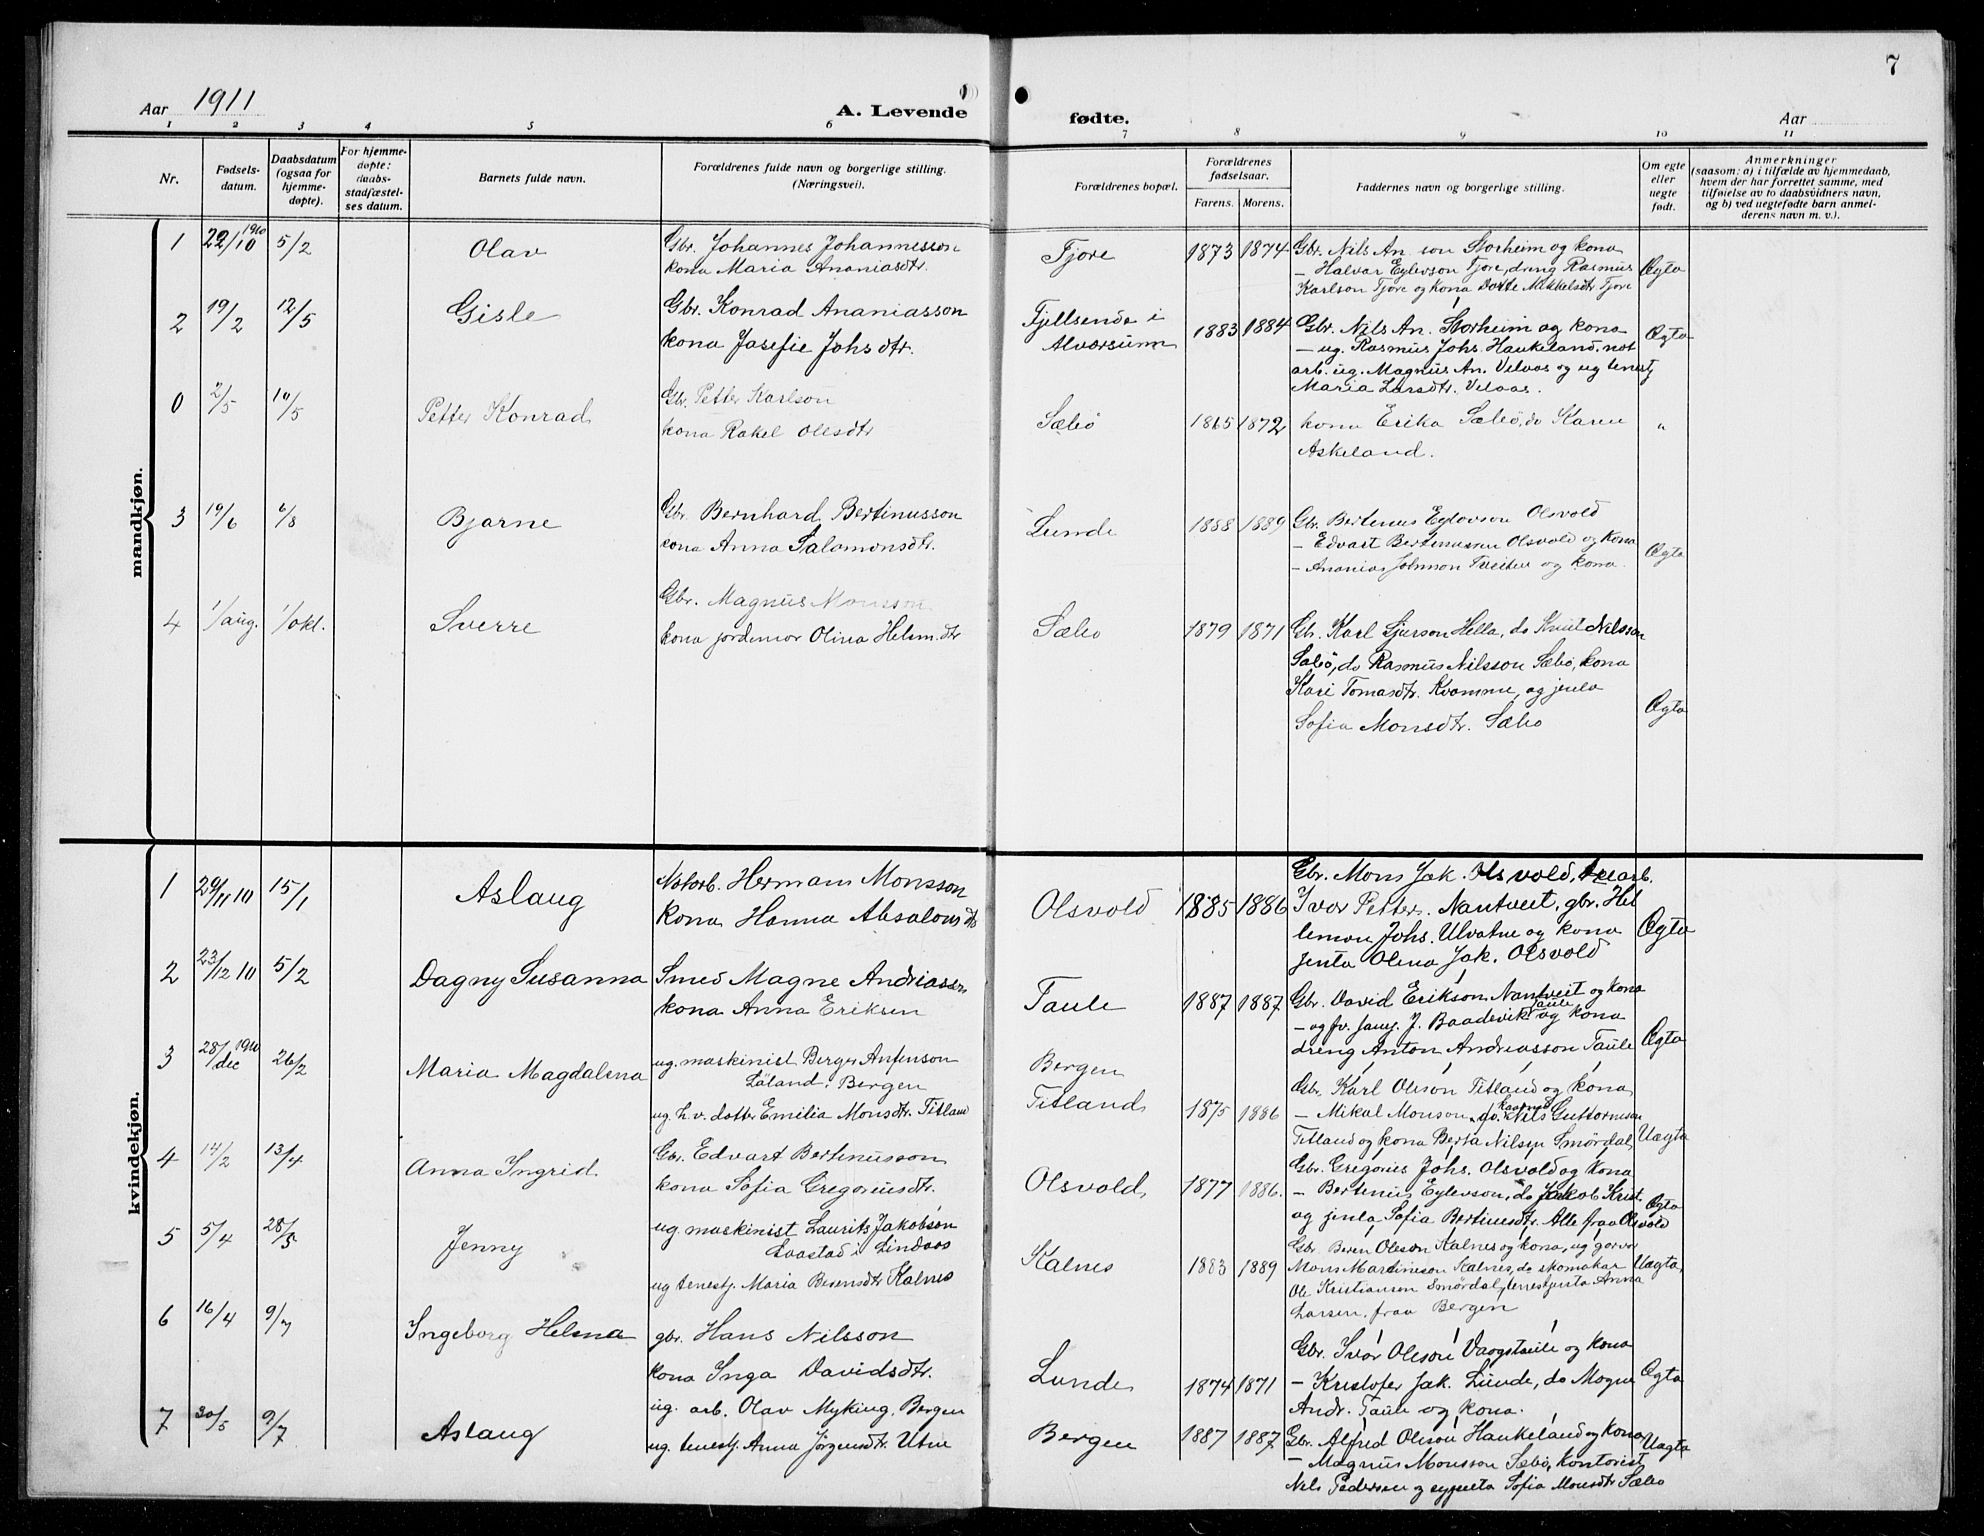 7
Aar 1911
A. Levende
fødte.
Aar
1 2 3 4 5 6 7 8 9 10 11
Nr.
Fødsels-
datum.
Daabsdatum
(ogsaa for
hjemme-
døpte).
For hjemme-
døpte:
daabs-
stadfæstel-
ses datum.
Barnets fulde navn.
Forældrenes fulde navn og borgerlige stilling.
(Næringsvei).
Forældrenes bopæl.
Forældrenes
fødselsaar.
Farens. Morens.
Faddernes navn og borgerlige stilling.
Om egte
eller
uegte
født.
Anmerkninger
(saasom: a) i tilfælde av hjemmedaab,
hvem der har forrettet samme, med
tilføielse av to daabsvidners navn,
og b) ved uegtefødte barn anmel-
derens navn m. v.).
mandkjøn.
1 22/10 1910 5/2 Olav
Gbr. Johannes Johannesson
kona Maria Ananiasdtr.
Fjore 1873 1874
Gbr. Nils An. son Storheim og kona
– Halvar Eylevson Fjore, dreng Rasmus
Karlson Fjore og kona Dorte Mikkelsdtr Fjore
Ægta
2 19/2 12/5 Gisle
Gbr. Konrad Ananiasson
kona Josefie Johsdtr.
Fjellsende i
Alversund
1883 1884
Gbr. Nils An. Storheim og kona
– ug. Rasmus Johs. Haukeland, not
arb. ug. Magnus An. Velvas og ug tenestj
Maria Larsdtr. Velvas.
Ægta
0 2/5 10/5 Petter Konrad
Gbr. Petter Karlson
kona Rakel Olesdtr
Sæbö 1865 1872
kona Erika Sæbö, do Karen
Askeland.
"
3 19/6 6/8 Bjarne
Gbr. Bernhard Bertinusson
kona Anna Salomonsdtr.
Lunde 1888 1889
Gbr. Bertenus Eylevson Olsvold
– Edvart Bertinussen Olsvold og kona
– Ananias Johnson Tveiten og kona.
Ægta
4 1/aug. 1/okt. Sverre
Gbr. Magnus Monsson
kona jordemor Olina Helm.dtr
Sæbo 1879 1871
Gb. Karl Sjurson Hella, do Knut Nilsson
Sæbö, do Rasmus Nilsson Sæbö, kona
Kari Tomasdtr. Kvamme, og jenta
Sofia Monsdtr. Sæbo
Ægta
kvindekjøn.
1 29/11 10 15/1 Aslaug
Notarb. Herman Monsson
kona Hanna Absalonsdtr
Olsvold 1885 1886
Gbr. Mons Jak. Olsvold,
Ivar Petters. Nantveit, gbr. Hel
lemon Johs. Ulvatne og kona
jenta Olina Jak. Olsvold
Ægta
2 23/12 10 5/2 Dagny Susanna
Smed Magne Andriassen
kona Anna Eriksen
Taule 1887 1887
Gbr. David Erikson Nantveit og kona
– og fv. J. Baadsvik Taule og kona
dreng Anton Andriasson Taule
Ægta
3 28/dec 1910 26/2 Maria Magdalena
ug. maskinist Berger Anfinson
Løland, Bergen
ug. h.v. dotter Emilia Monsdtr. Titland
Bergen
Titland 1875 1886
Gbr. Karl Oleson Titland og kona
– Mikal Monson, do. Nils Guttormson
Titland og kona Berta Nilsen Smördal
Uægta
4 14/2 13/4 Anna Ingrid
Gbr. Edvart Bertinusson
kona Sofia Gregoriusdtr.
Olsvold 1877 1886.
Gbr. Gregorius Johs. Olsvold og kona
– Bertenus Eylevson, do Jakob Krist.
og jenta Sofia Bertinusdtr. Alle fraa Olsvold
Ægta
5 5/4 28/5 Jenny
ug. maskinist Laurits Jakobson
Laastad i Lindaas
ug tenestj. Maria Berensdtr Kalnes
Kalnes 1883 1889
Gbr. Beren Oleson Kalnes og kona, ug garver
Mons Martineson Kalnes, do skomakar
Ole Kristiansen Smördal, tenestjenta Anna
Larsen, fraa Bergen
Uægta
6 16/4 9/7 Ingeborg Helma
gbr. Hans Nilsson
kona Inga Davidsdtr.
Lunde 1874 1871
Gbr. Ivar Oleson Vaagstaule og kona
– Kristofer Jak. Lunde, do Mogne
Andr. Taule og kona.
Ægta
7 30/5 9/7 Aslaug
ug. arb. Olav Myking, Bergen
ug. tenestj. Anna Jørgensdtr. Utne
Bergen 1887 1887
Gbr. Alfred Oleson Haukeland og kona
– Magnus Monsson Sæbö, kontorist
Nils Pedersen og syjenta Sofia Monsdtr Sæbo
Uægta